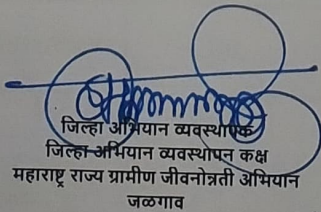 जिल्हा अभियान व्यवस्थापक
जिल्हा अभियान व्यवस्थापन कक्ष
महाराष्ट्र राज्य ग्रामीण जीवनोन्नती अभियान
जळगाव